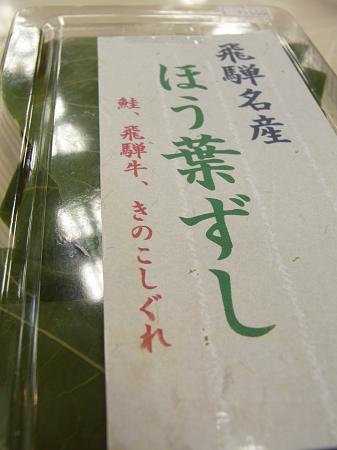 飛騨名産
ほう葉ずし
鮭、飛騨牛、きのこしぐれ